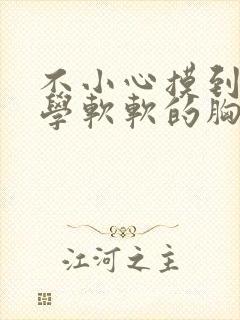 不小心摸到
學軟軟的胸
江河之主